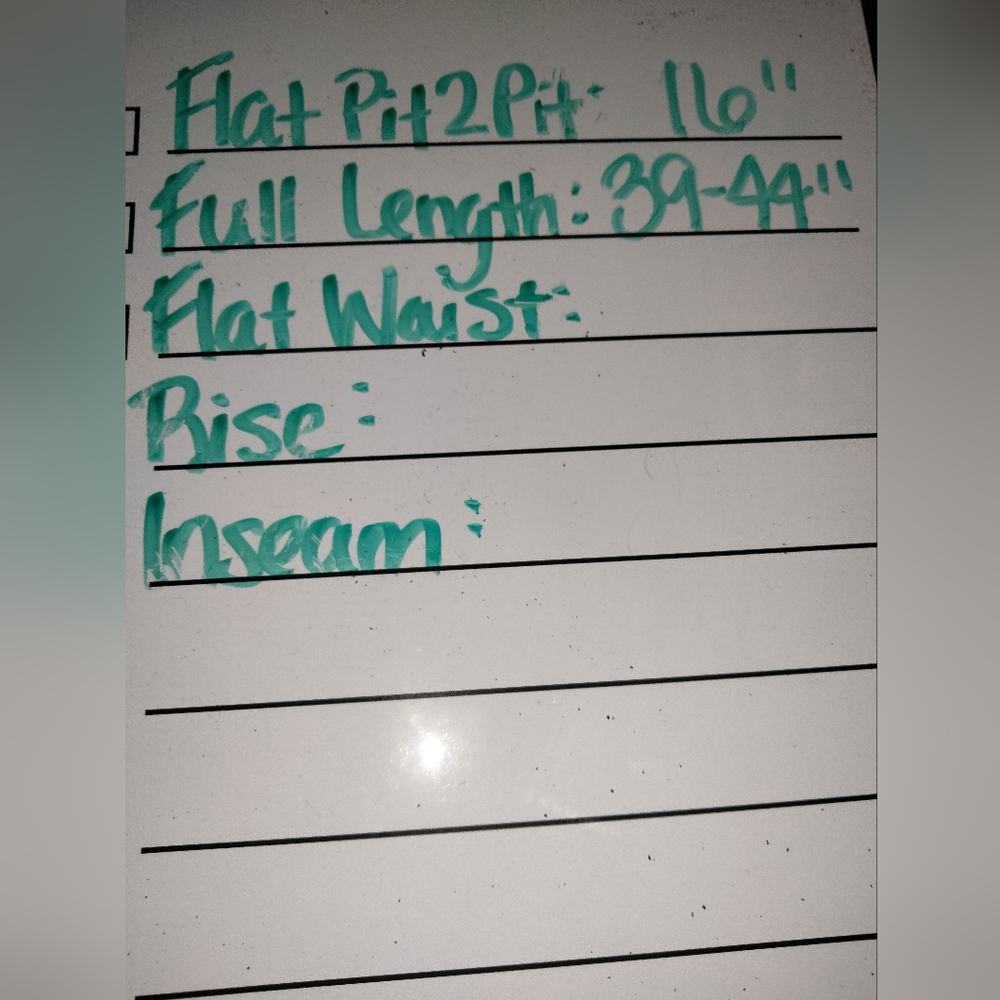 Flat Pit2Pit: 16"
Full Length: 39-44"
Flat Waist:
Rise:
Inseam: